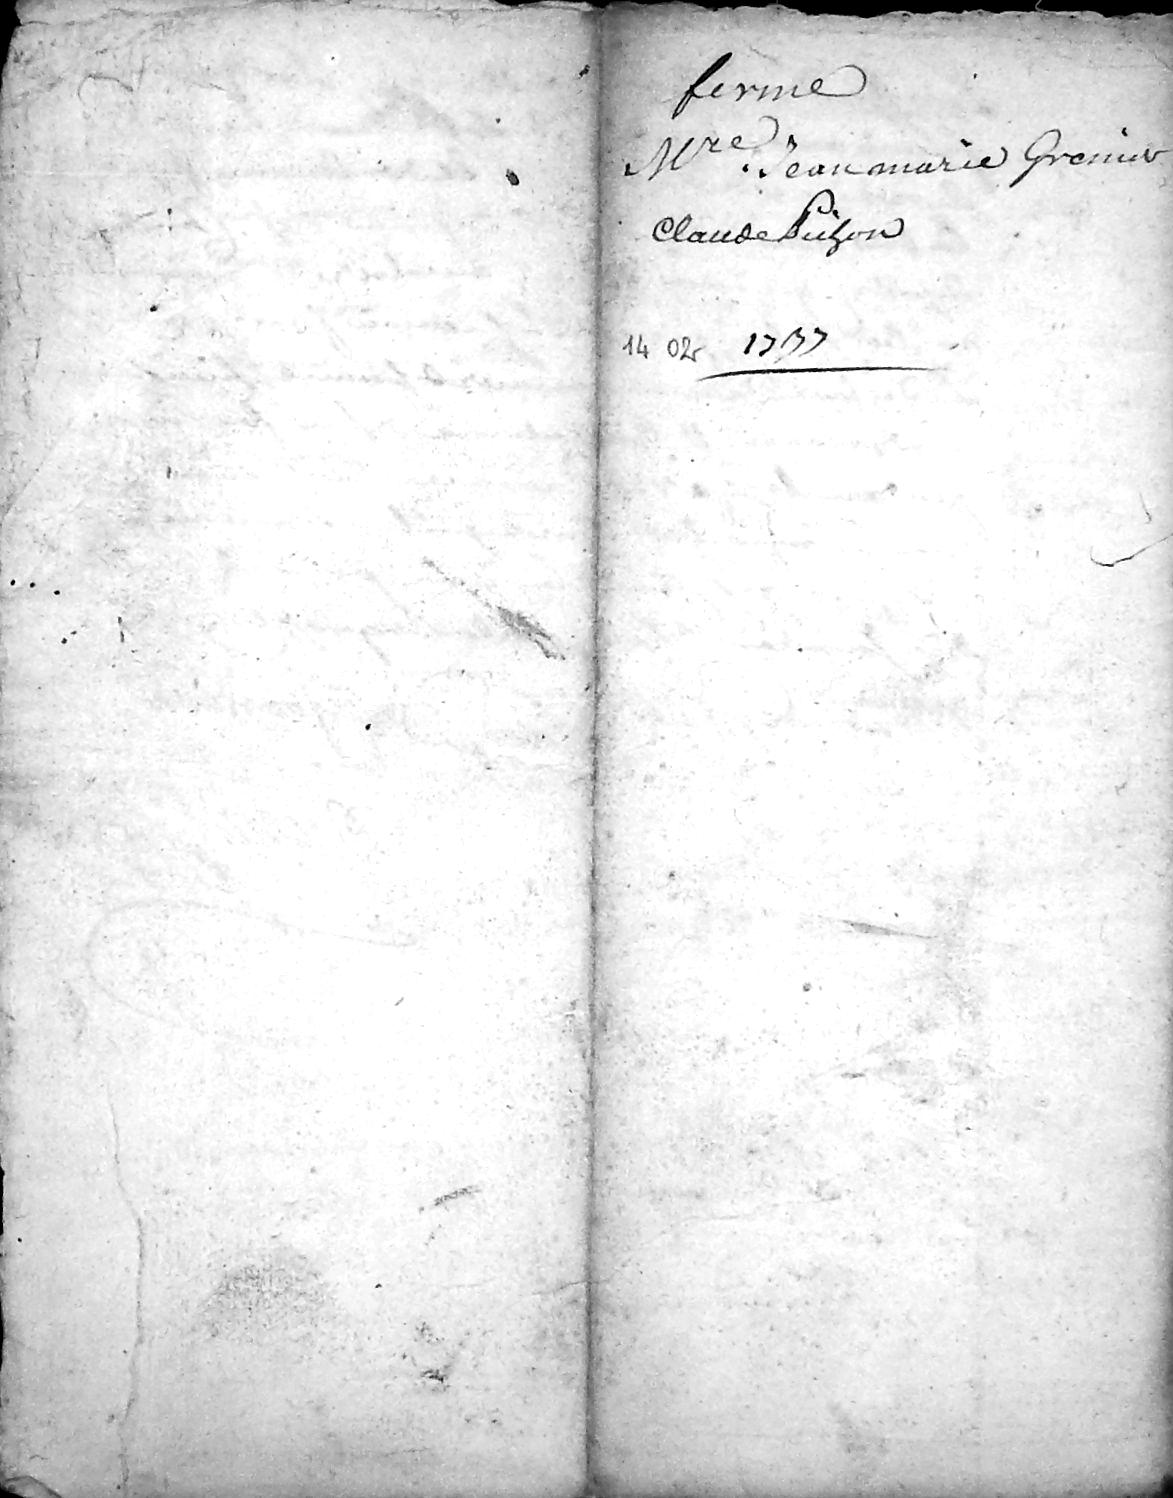 ferme
Mre Jean marie Grenier
Claude Puzon
14 02r 1737